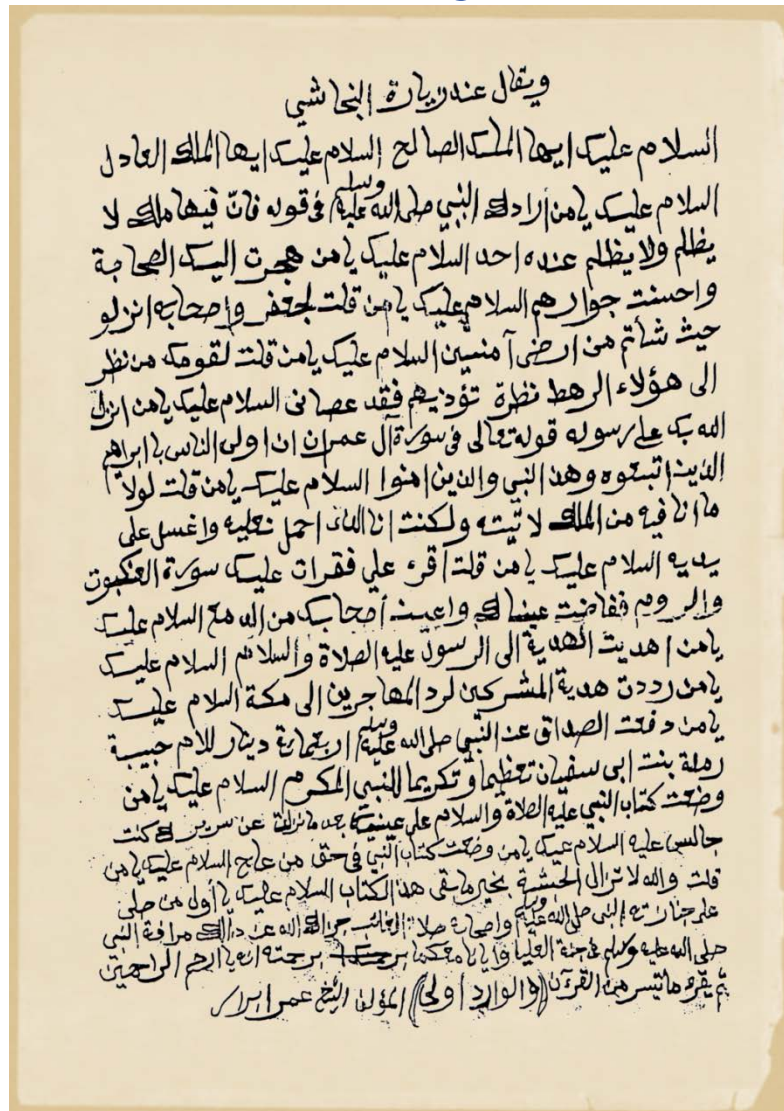 ويقال عند زيارة النجاشي
السلام عليك ايها الملك الصالح السلام عليك ايها الملك العادل
السلام عليك يامن أرادك النبي صلى الله عليه وسلم في قوله فانّ فيها ملك لا
يظلم ولا يظلم عنده احد السلام عليك يامن هجرت اليك الصحابة
واحسنت جوارهم السلام عليك يامن قلت لجعفر واصحابه انزلو
حيث شأتم من ارضى آمنين السلام عليك يامن قلت لقومك من نظر
الى هؤلاء الرهط نظرة تؤذيهم فقد عصانى السلام عليك يامن انزل
الله بك على رسوله قوله تعالى في سورة آل عمران ان اولى الناس بابراهيم
الذين اتبعوه وهذ النبي والذين امنوا السلام عليك يامن قلت لولا
ما انا فيه من الملك لاتيته ولكنت انا الذى احمل نعليه واغسل على
يديه السلام عليك يامن قلت أقرء علي فقرات عليك سورة العنكبوت
والروم ففاضت عيناك واعين أصحابك من الدمع السلام عليك
يامن اهديت الهدية الى الرسول عليه الصلاة والسلام السلام عليك
يامن رددت هدية المشركين لرد المهاجرين الى مكة السلام عليك
يامن دفعت الصداق عن النبي صلى الله عليه وسلم اربعمائة دينار للام حبيبة
رملة بنت ابى سفيان تعظيما وتكريما للنبي المكرم السلام عليك يامن
وضعت كتاب النبي عليه الصلاة والسلام على عينيك بعد مانزلت عن سريرك كنت
جالس عليه السلام عيك يامن وضعت كتاب النبي في حق من عاج السلام عليك يامن
قلت والله لا تزال الحبشة بخير مابقى هذ الكتاب السلام عليك يا أول من صلى
على جنازته النبى صلى الله عليه وسلم واصحابه صلاة الغائب جزاك الله عن ذالك مرافقة النبي
صلى الله عليه وسلم في جنة العليا وايانا معكما برحمته انه يا ارحم الراحمين
ثم يقرء ماتيسر من القرآن ((والوارد أولى)) المؤلف الشيخ عمر ابرار